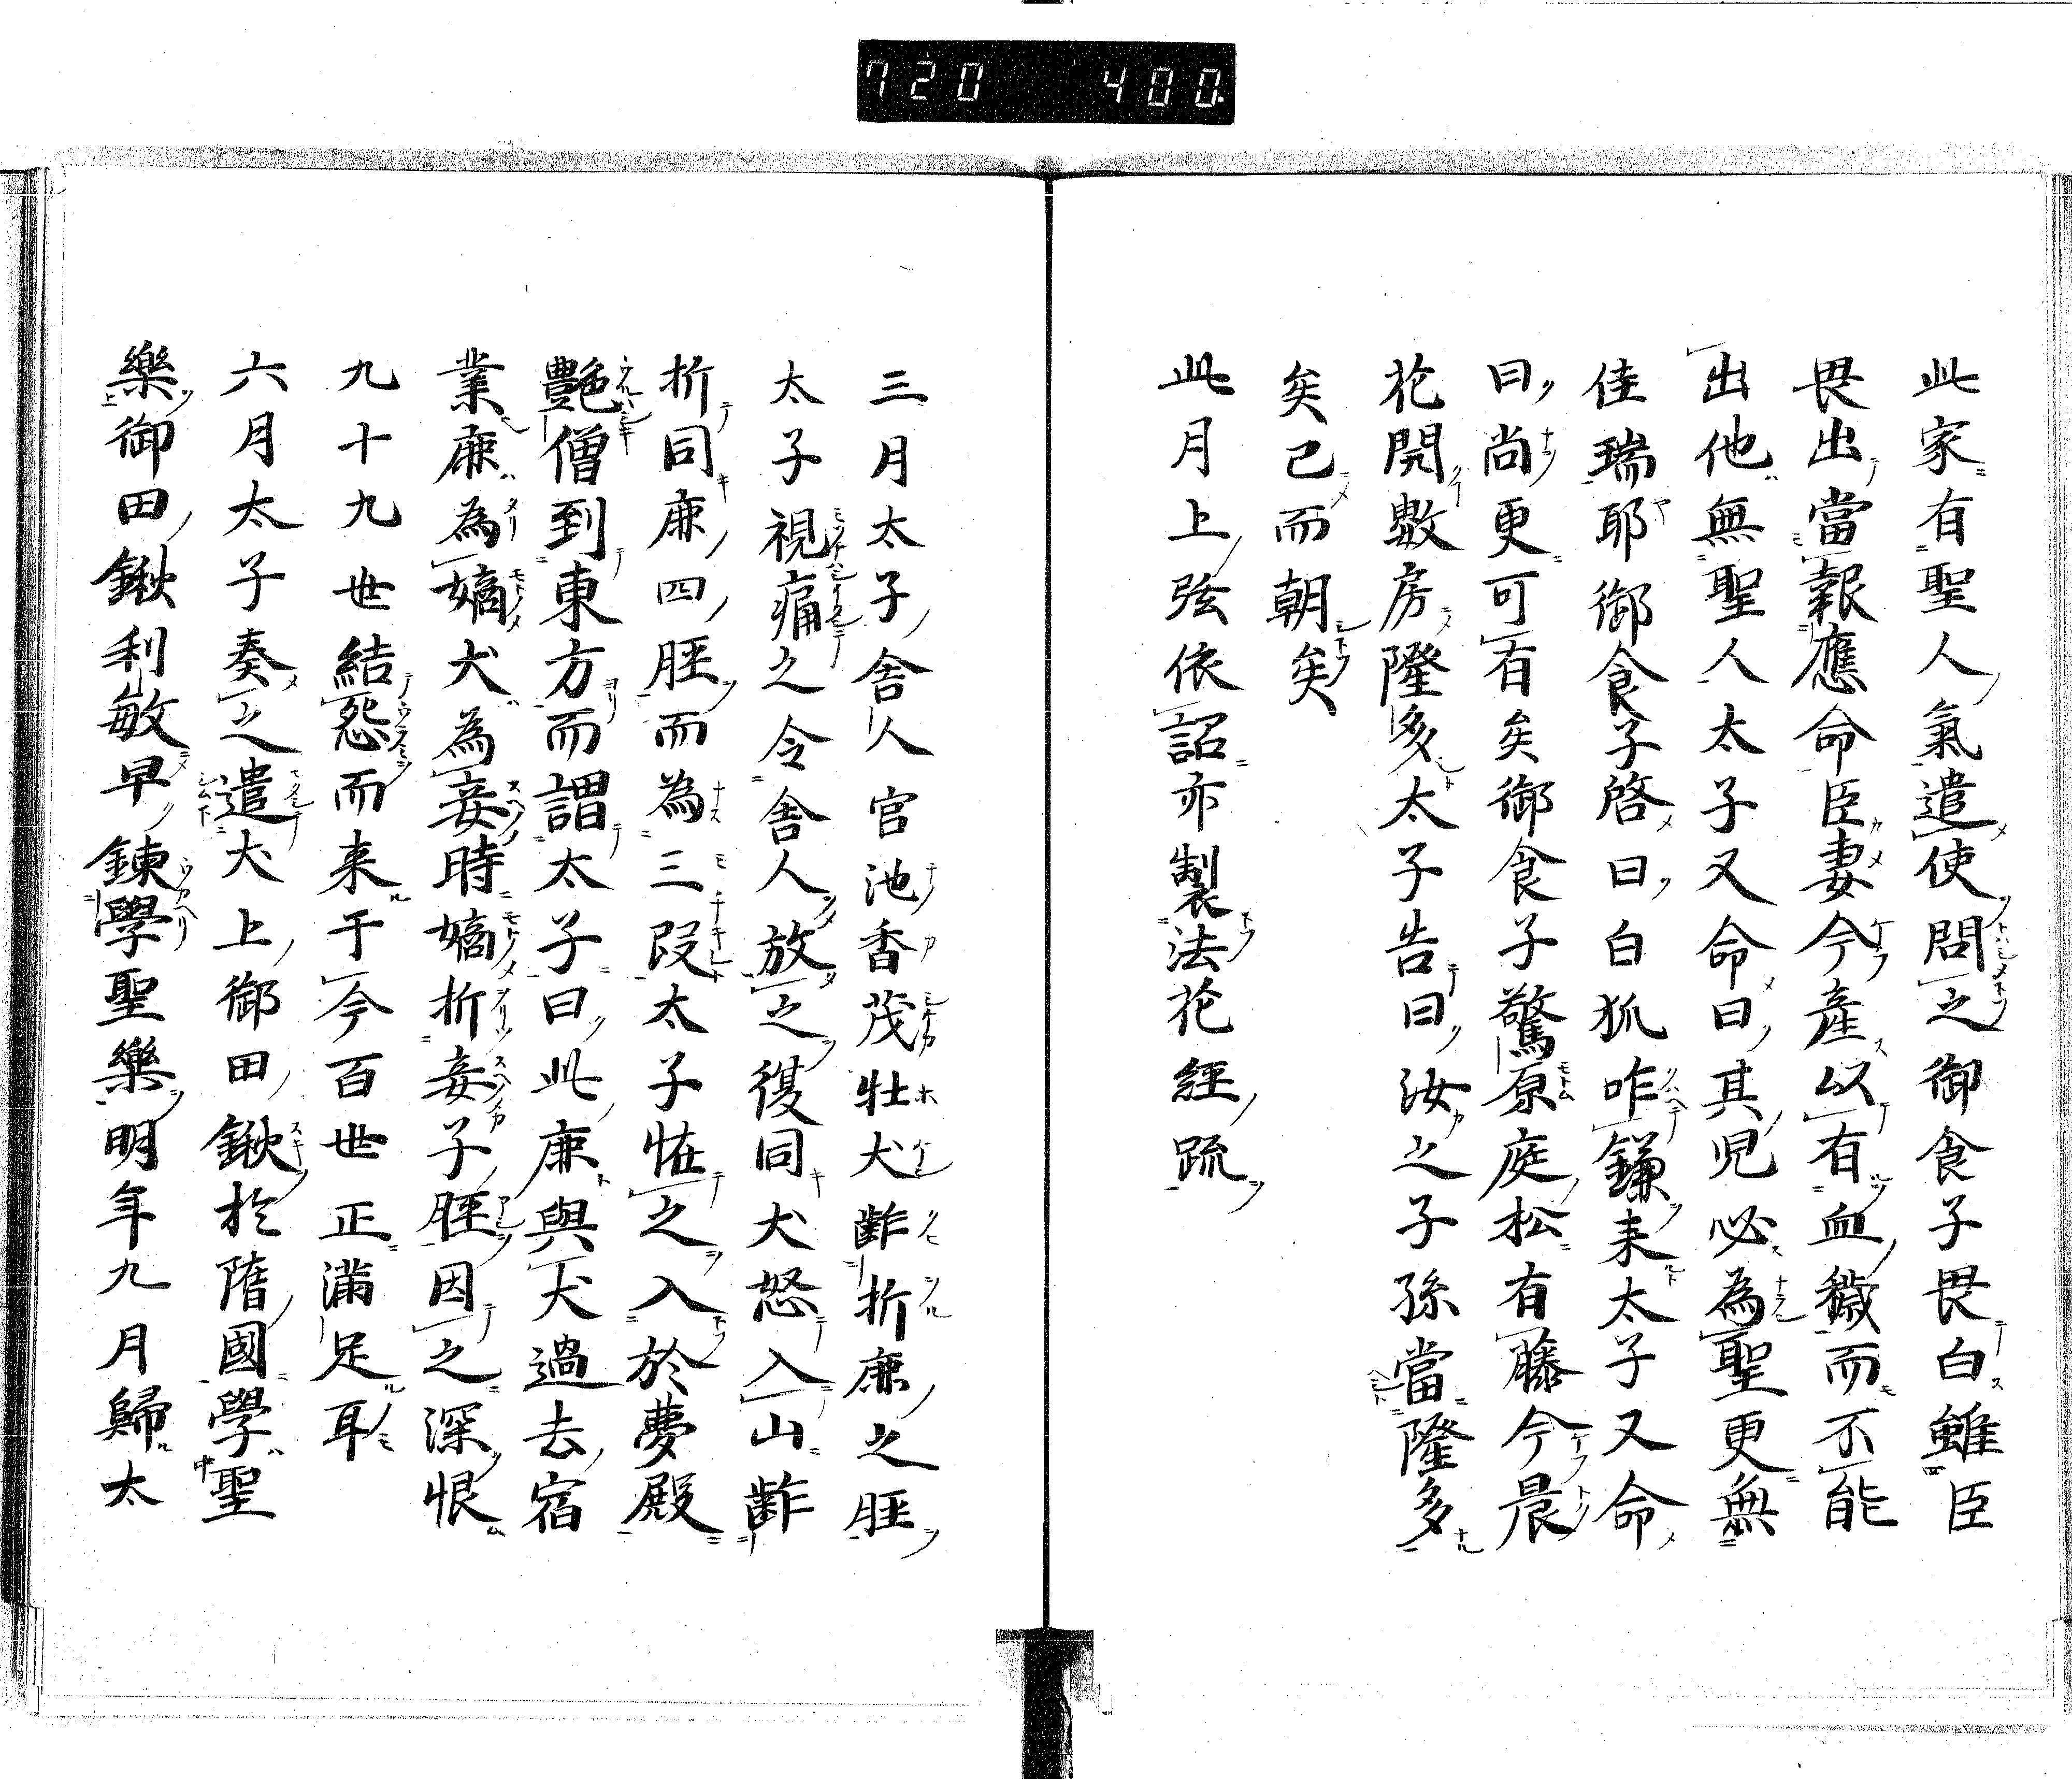 720 400.
此家有聖人氣遣使問之御食子畏白雖臣
畏出當報應命臣妻今産以有血穢而不能
出他無聖人太子又命曰其児必為聖更無
佳瑞耶御食子啓曰白狐咋鎌来太子又命
曰尚更可有矣御食子驚原庭松有藤今晨
花開數房隆多太子告曰汝之子孫當隆多
矣已而朝矣
此月上弦依詔亦製法花経疏
三月太子舎人宮池香茂牡犬齚折鹿之脛
太子視痛之令舎人放之復同犬怒入山齚
折同鹿四脛而為三段太子恠之入於夢殿
艶僧到東方而謂太子曰此鹿與犬過去宿
業鹿為嫡犬為妾時嫡折妾子脛因之深恨
九十九世結怨而来于今百世正滿足耳
六月太子奏之遣犬上御田鍬於隋國學聖
樂御田鍬利敏早錬學聖樂明年九月歸太